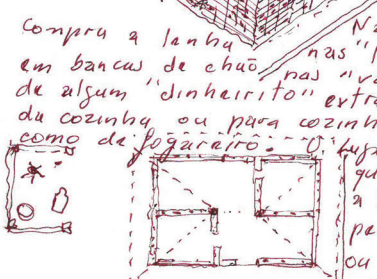 Compra a lenha nas "l
em bancas de chão nas "v
de algum "dinheirito" extra
da cozinha ou para cozinh
como de fogareiro. O
qu
a
pa
ou